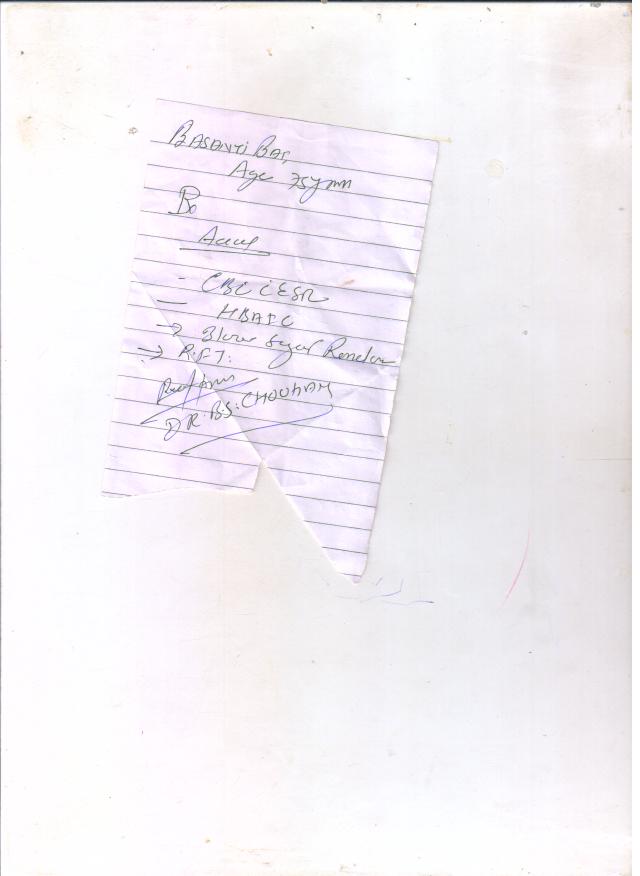 BASANTI BAI
Age 75y
CBC C ESR
HBA1C
→ Blood Sugar Random
→ R.F.T.
DR. B.S. CHOUHAN